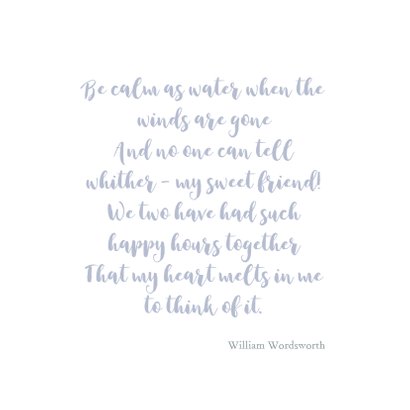 Be calm as water when the
winds are gone
And no one can tell
whither - my sweet friend!
We two have had such
happy hours together
That my heart melts in me
to think of it.
William Wordsworth